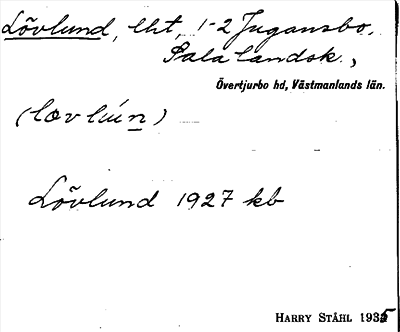 Lövlund, lht, 1-2 Jugansbo,
Sala landsk.,
Övertjurbo hd, Västmanlands län.
(lœvlún)
Lövlund 1927 kb
HARRY STÅHL 1935